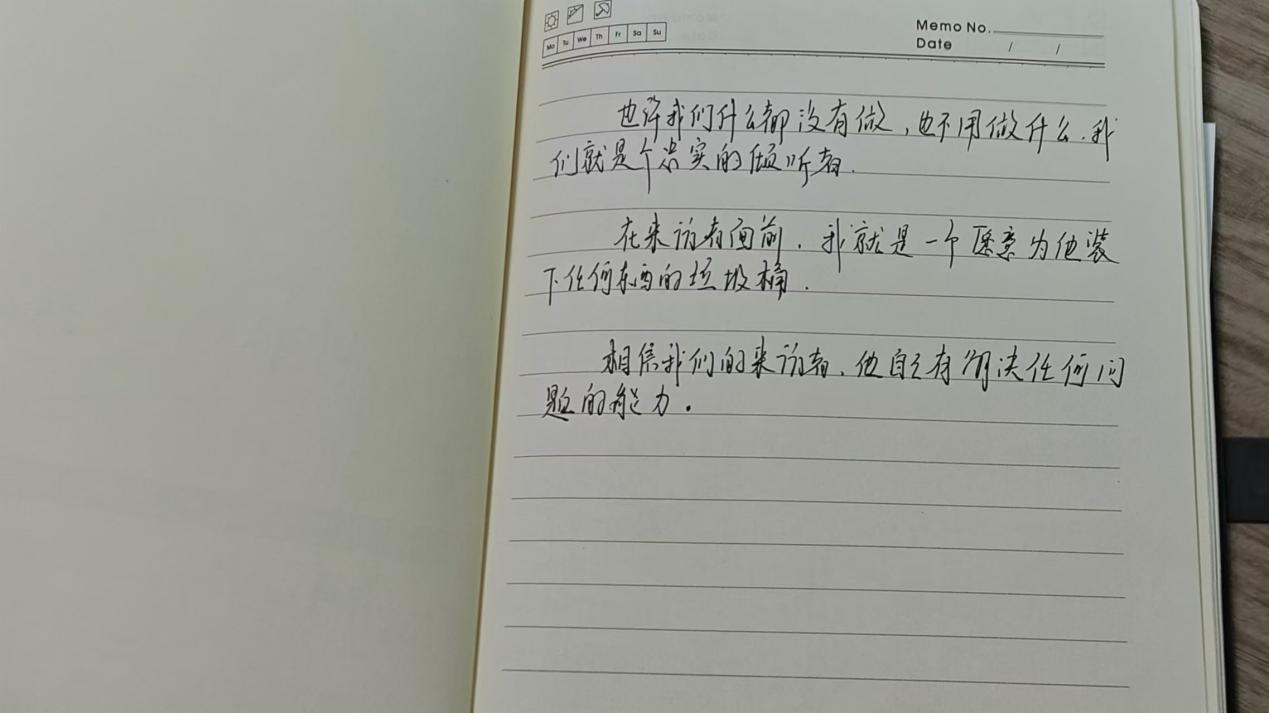 Memo No.
Mo Tu We Th Fr Sa Su
Date / /
也许我们什么都没有做，也不用做什么.我
们就是个忠实的倾听者.
在来访者面前.我就是一个愿意为他装
下任何东西的垃圾桶.
相信我们的来访者、他自己有解决任何问
题的能力.